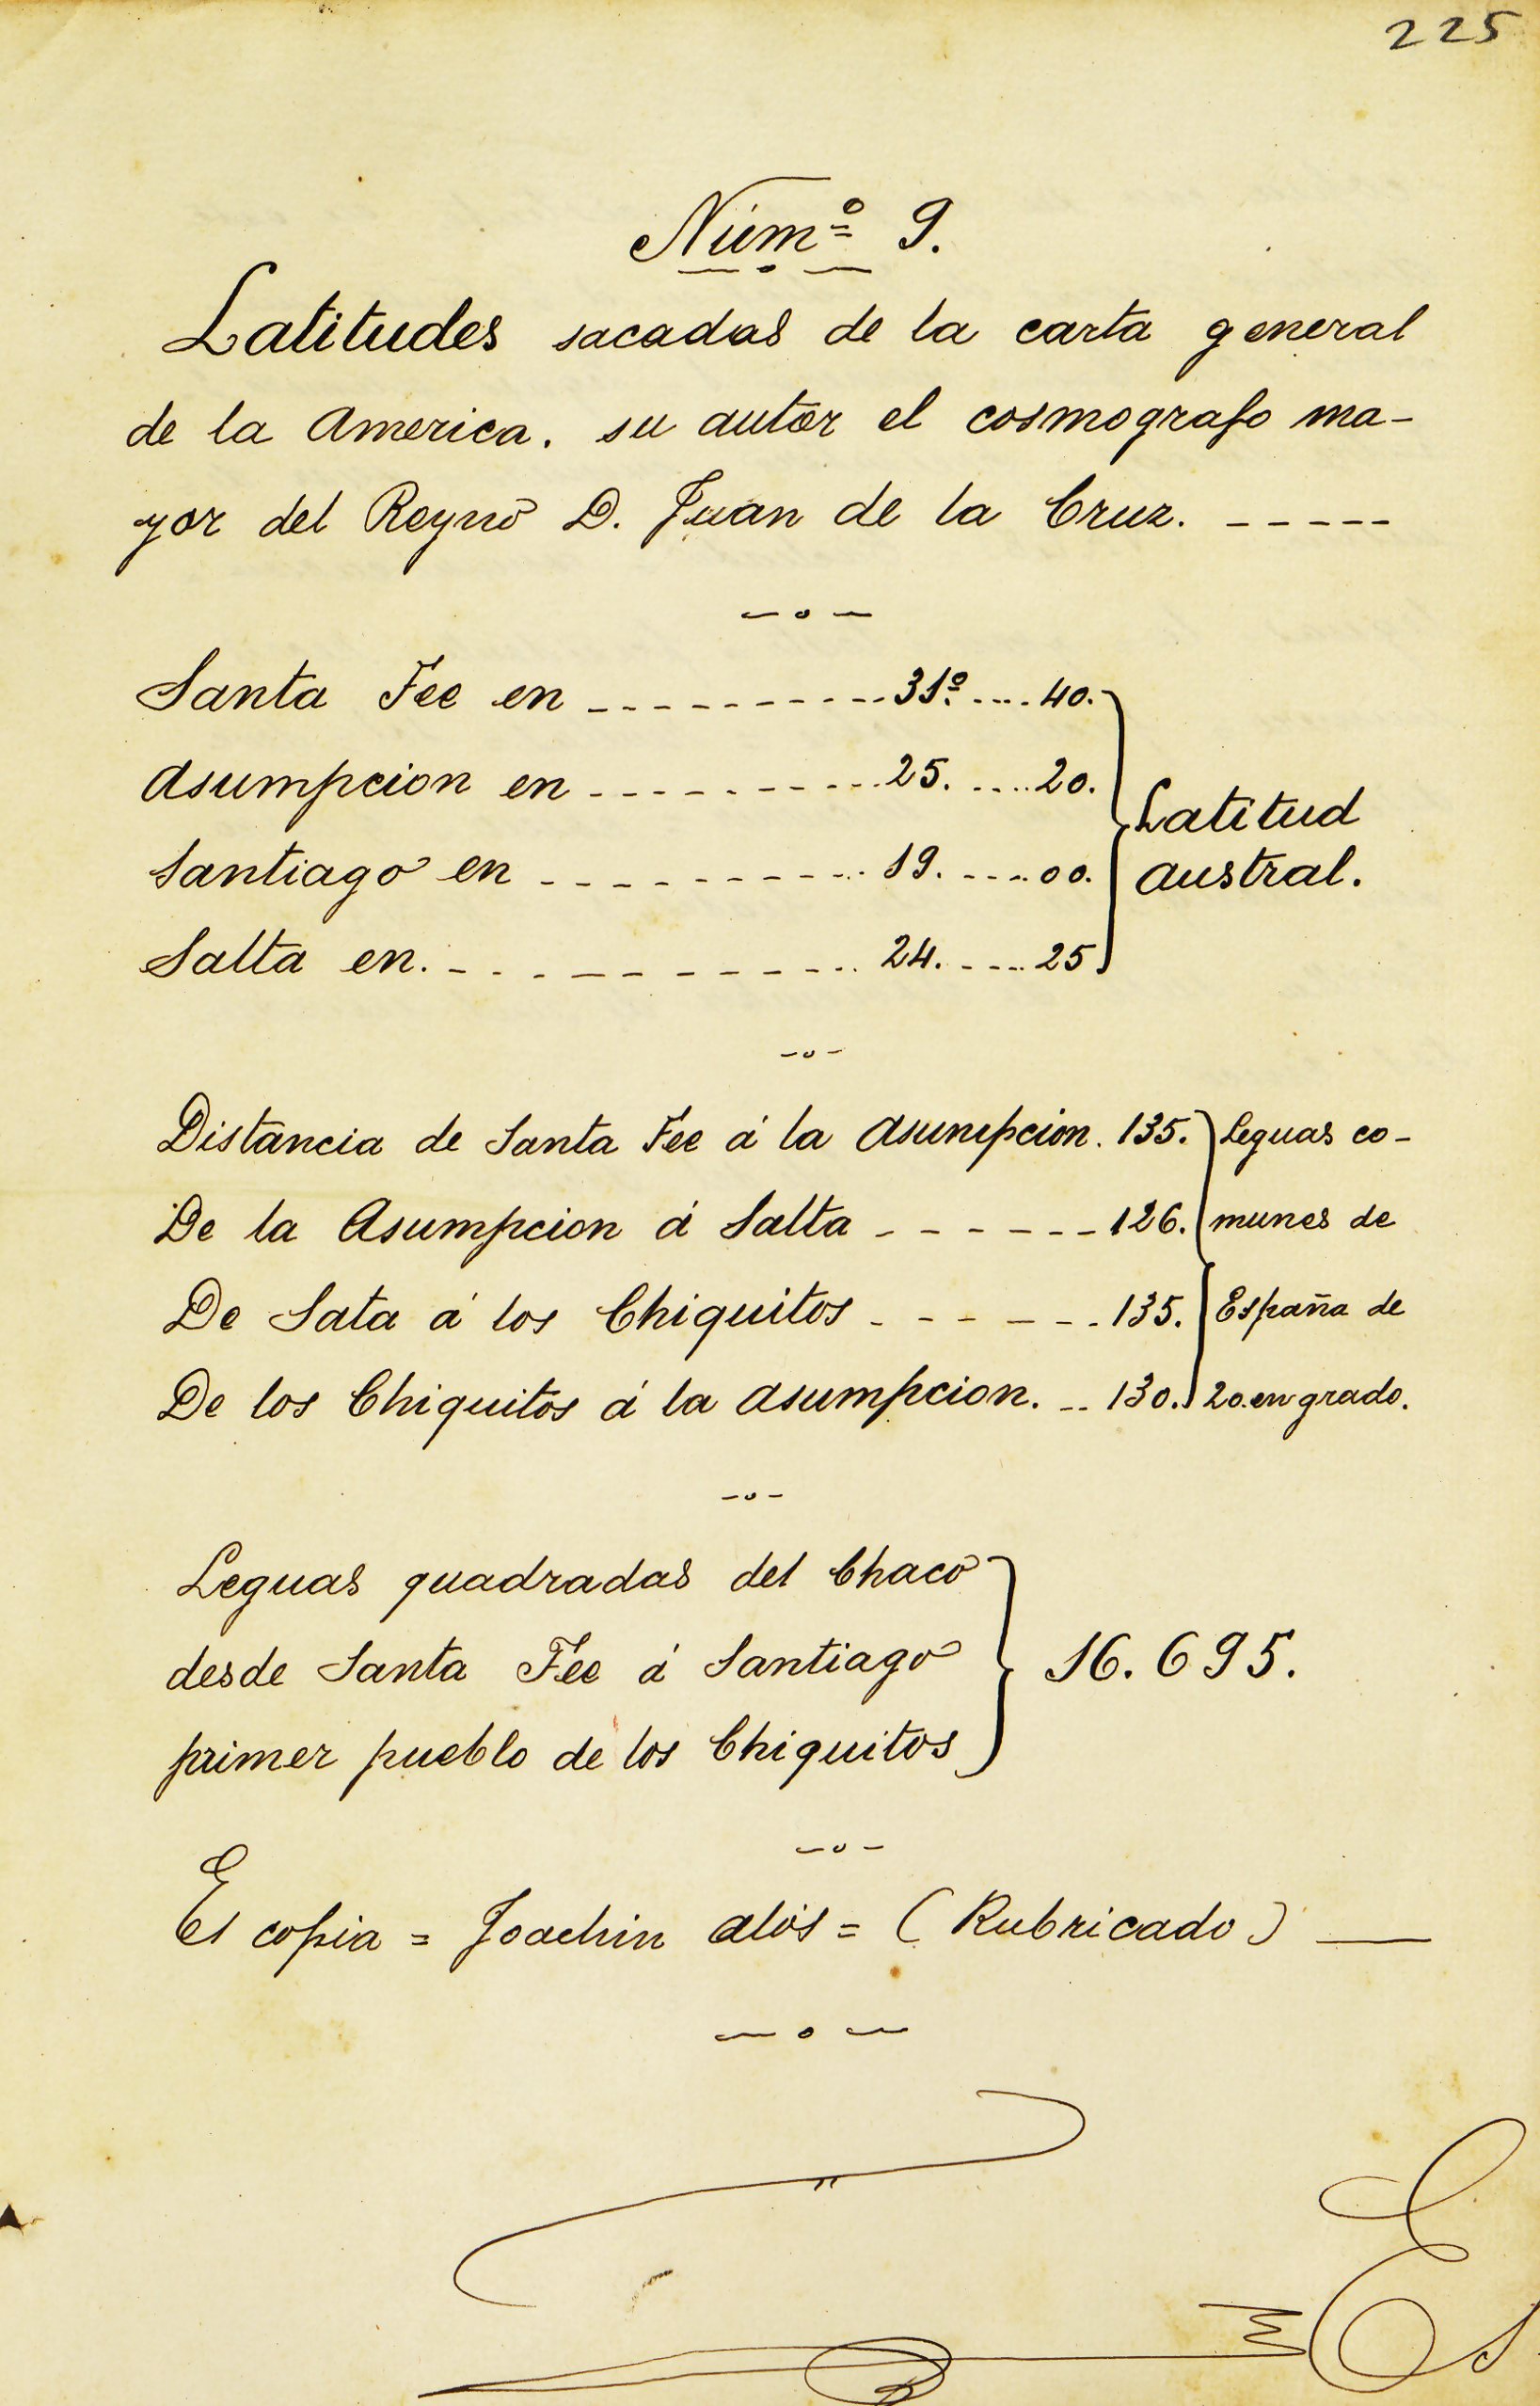 225
Núm.º 9.
Latitudes sacadas de la carta general
de la America. su autor el cosmografo ma-
yor del Reyno D. Juan de la Cruz. -----
Santa Fee en ---------- 31º .... 40.
Asumpcion en ---------- 25. .... 20.
Santiago en ---------- 19. .... 00.
Salta en. ---------- 24. .... 25
Latitud
austral.
Distancia de Santa Fee á la Asumpcion. 135. Leguas co-
De la Asumpcion á Salta ------ 126. munes de
De Sata á los Chiquitos ------ 135. España de
De los Chiquitos á la Asumpcion. -- 130. 20. en grado.
Leguas quadradas del Chaco
desde Santa Fee á Santiago
primer pueblo de los Chiquitos
16.695.
Es copia = Joachin Alós = (Rubricado) —
Es